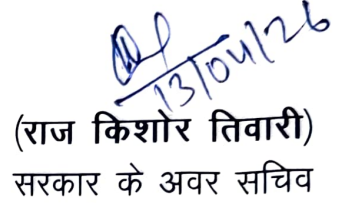 13/04/26
(राज किशोर तिवारी)
सरकार के अवर सचिव